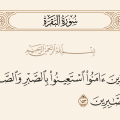 سُورَةُ البَقَرَةِ
بِسْمِ ٱللَّهِ ٱلرَّحْمَٰنِ ٱلرَّحِيمِ
ءَامَنُوا۟ ٱسْتَعِينُوا۟ بِٱلصَّبْرِ